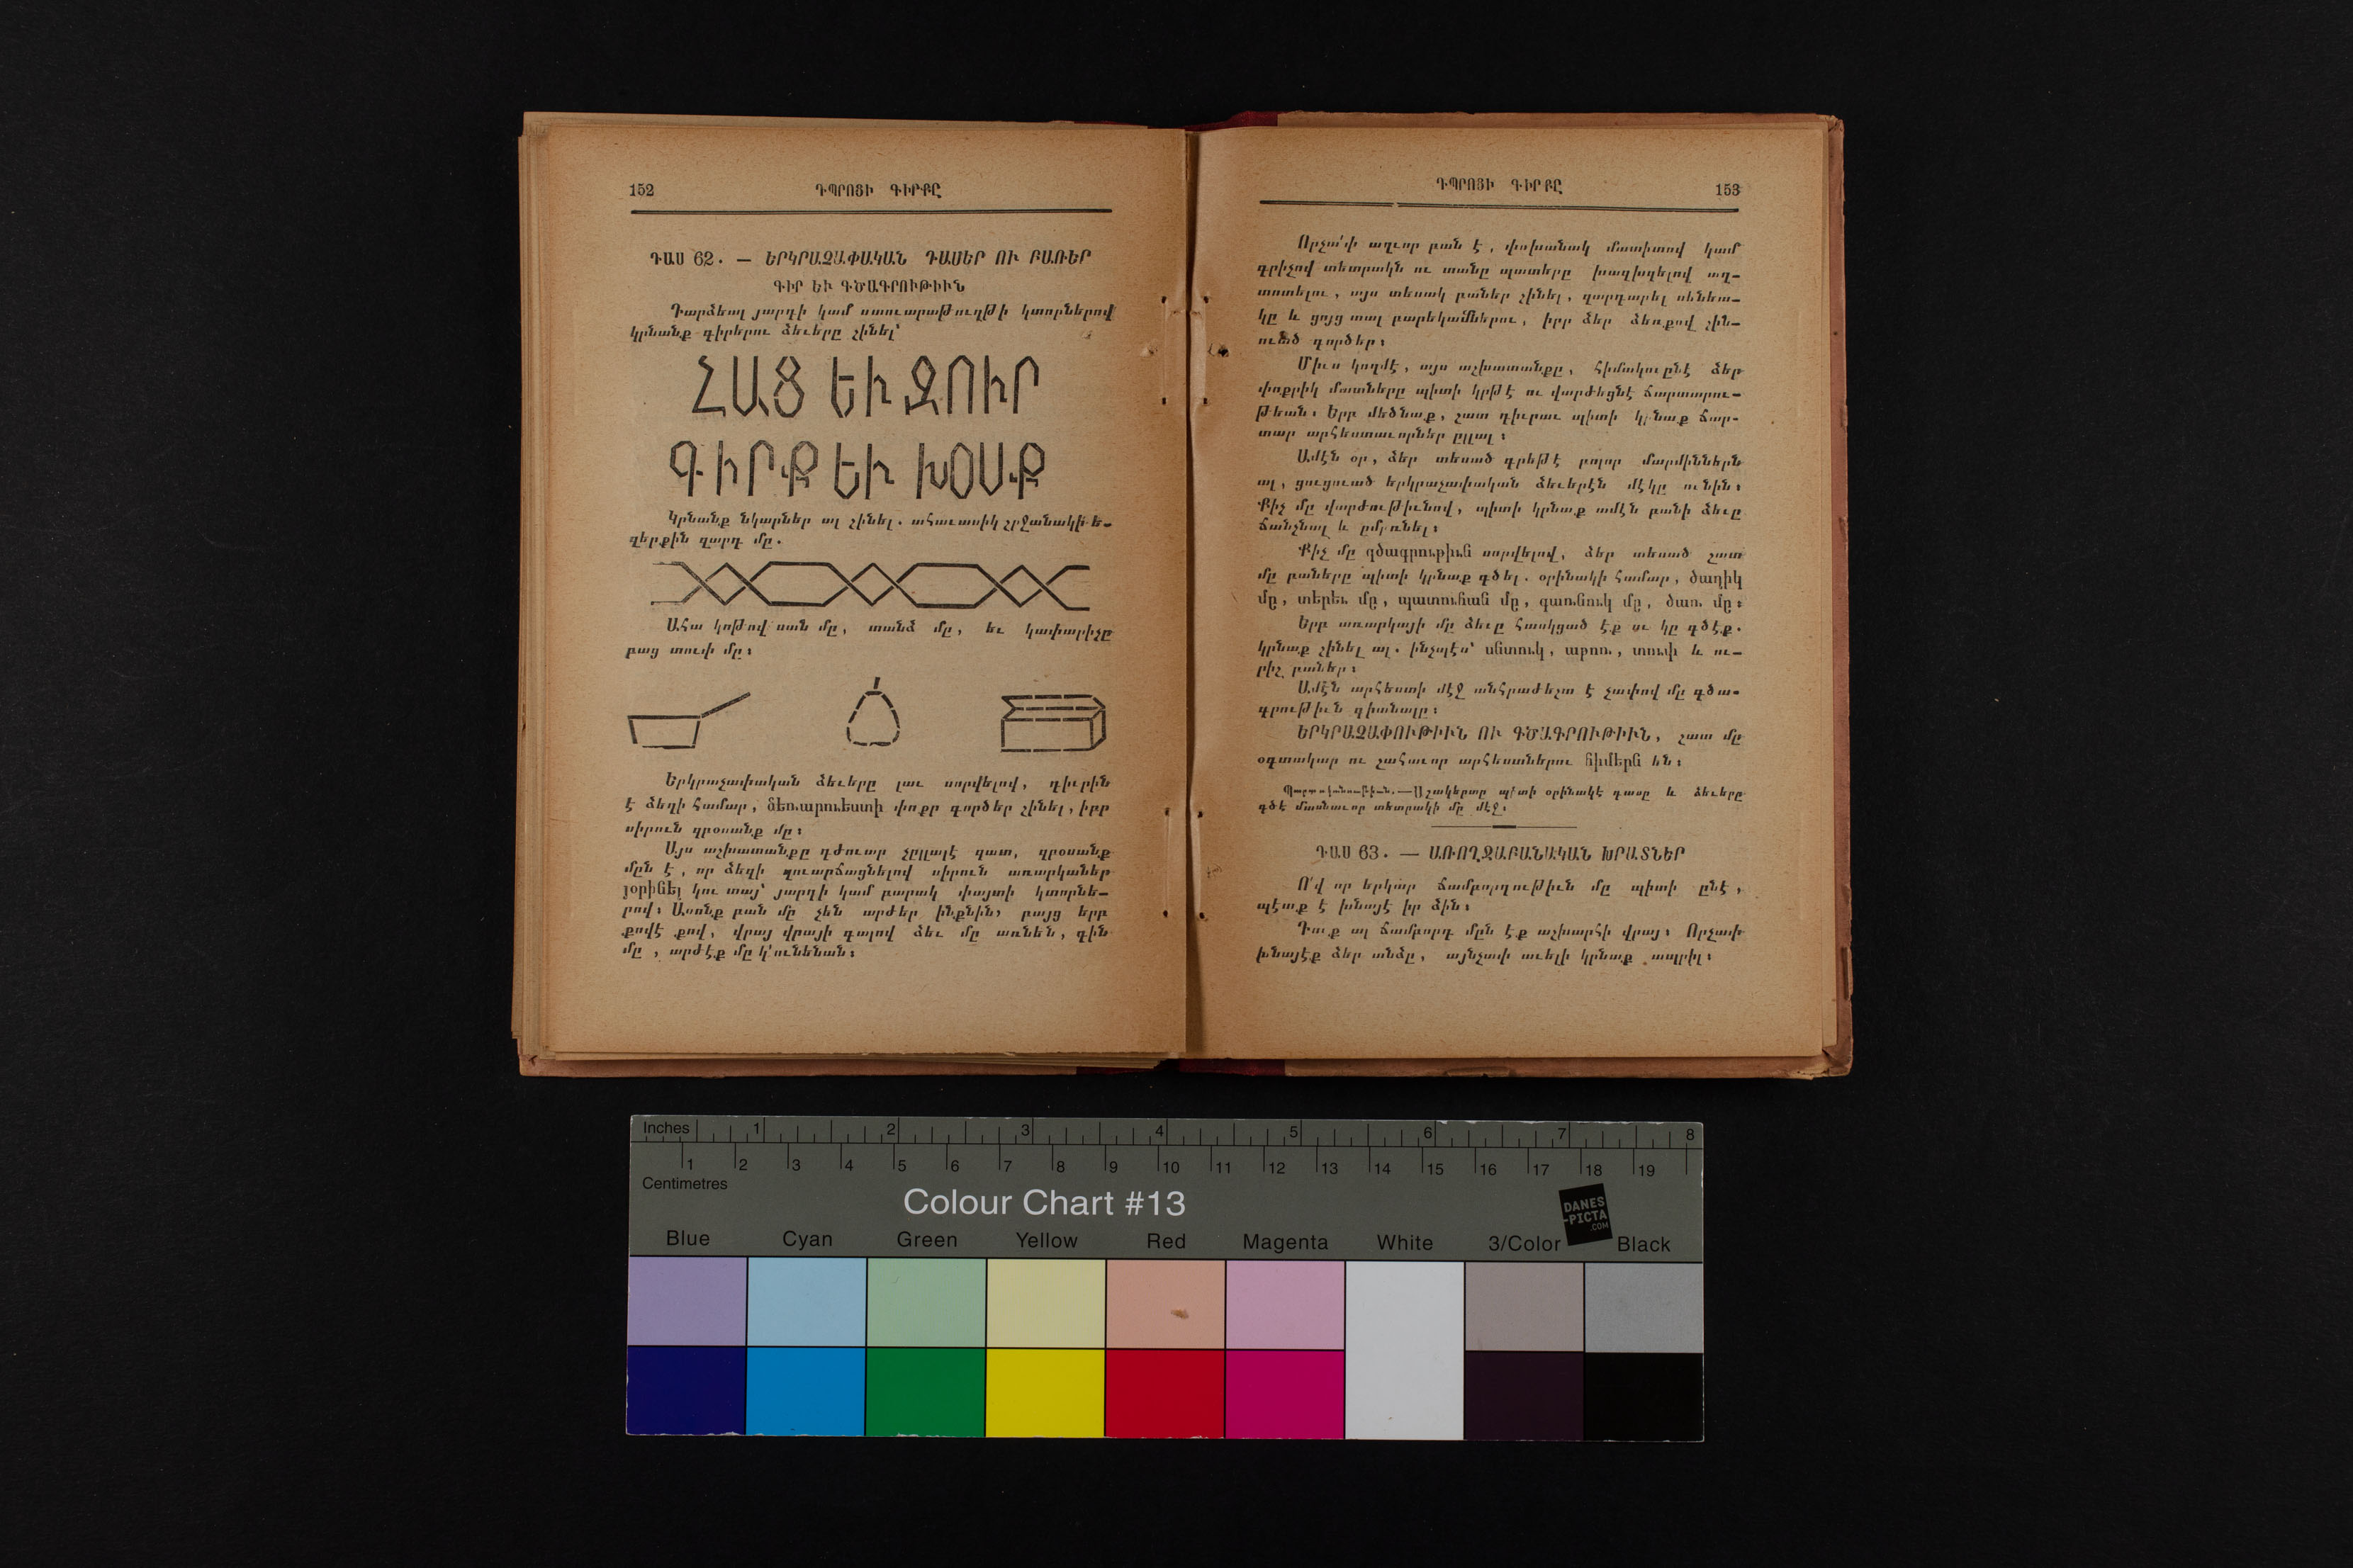 152
ԴՊՐՈՑԻ ԳԻՐՔԸ
ԴԱՍ 62. — ԵՐԿՐԱՉԱՓԱԿԱՆ ԴԱՍԵՐ ՈՒ ԲԱՌԵՐ
ԳԻՐ ԵՒ ԳԾԱԳՐՈՒԹԻՒՆ
Դարձեալ յարդի կամ ստուարաթուղթի կտորներով
կրնանք գիրերու ձեւերը շինել՝
ՀԱՑ ԵՒ ՋՈՒՐ
ԳԻՐՔ ԵՒ ԽՕՍՔ
Կրնանք նկարներ ալ շինել. ահաւասիկ շրջանակի ե-
զերքին զարդ մը.
Ահա կոթով սան մը, տանձ մը, եւ կափարիչը
բաց տուփ մը։
Երկրաչափական ձեւերը լաւ սորվելով, դիւրին
է ձեզի համար, ձեռարուեստի փոքր գործեր շինել, իբր
սիրուն զբօսանք մը։
Այս աշխատանքը դժուար չըլլալէ զատ, զբօսանք
մըն է, որ ձեզի զուարճացնելով սիրուն առարկաներ
յօրինել կու տայ՝ յարդի կամ բարակ փայտի կտորնե-
րով։ Ասոնք բան մը չեն արժեր ինքնին, բայց երբ
քովէ քով, վրայ վրայի գալով ձեւ մը առնեն, գին
մը, արժէք մը կ՚ունենան։
ԴՊՐՈՑԻ ԳԻՐՔԸ
153
Որչա՜փ աղւոր բան է, փոխանակ մատիտով կամ
գրիչով տետրակն ու տանը պատերը խազխզելով աղ-
տոտելու, այս տեսակ բաներ շինել, զարդարել սենեա-
կը և ցոյց տալ բարեկամներու, իբր ձեր ձեռքով շին-
ուած գործեր։
Միւս կողմէ, այս աշխատանքը, հիմակուընէ ձեր
փոքրիկ մատները պիտի կրթէ ու վարժեցնէ ճարտարու-
թեան։ Երբ մեծնաք, շատ դիւրաւ պիտի կրնաք ճար-
տար արհեստաւորներ ըլլալ։
Ամէն օր, ձեր տեսած գրեթէ բոլոր մարմիններն
ալ, ցուցուած երկրաչափական ձեւերէն մէկը ունին։
Քիչ մը վարժութիւնով, պիտի կրնաք ամէն բանի ձեւը
ճանչնալ և ըմբռնել։
Քիչ մը գծագրութիւն սորվելով, ձեր տեսած շատ
մը բաները պիտի կրնաք գծել. օրինակի համար, ծաղիկ
մը, տերեւ մը, պատուհան մը, գառնուկ մը, ծառ մը։
Երբ առարկայի մը ձեւը հասկցած էք ու կը գծէք.
կրնաք շինել ալ. ինչպէս՝ սնտուկ, աթոռ, տուփ և ու-
րիշ բաներ։
Ամէն արհեստի մէջ անհրաժեշտ է չափով մը գծա-
գրութիւն գիտնալը։
ԵՐԿՐԱՉԱՓՈՒԹԻՒՆ ՈՒ ԳԾԱԳՐՈՒԹԻՒՆ, շատ մը
օգտակար ու շահաւոր արհեստներու հիմերն են։
Պարտականութիւն.— Աշակերտը պիտի օրինակէ դասը և ձեւերը
գծէ մասնաւոր տետրակի մը մէջ։
ԴԱՍ 63. — ԱՌՈՂՋԱԲԱՆԱԿԱՆ ԽՐԱՏՆԵՐ
Ո՛վ որ երկար ճամբորդութիւն մը պիտի ընէ,
պէտք է խնայէ իր ձին։
Դուք ալ ճամբորդ մըն էք աշխարհի վրայ։ Որչափ
խնայէք ձեր անձը, այնչափ աւելի կրնաք ապրիլ։
Inches 1 2 3 4 5 6 7 8
1 2 3 4 5 6 7 8 9 10 11 12 13 14 15 16 17 18 19
Centimetres
Colour Chart #13
DANES
-PICTA
.COM
Blue Cyan Green Yellow Red Magenta White 3/Color Black